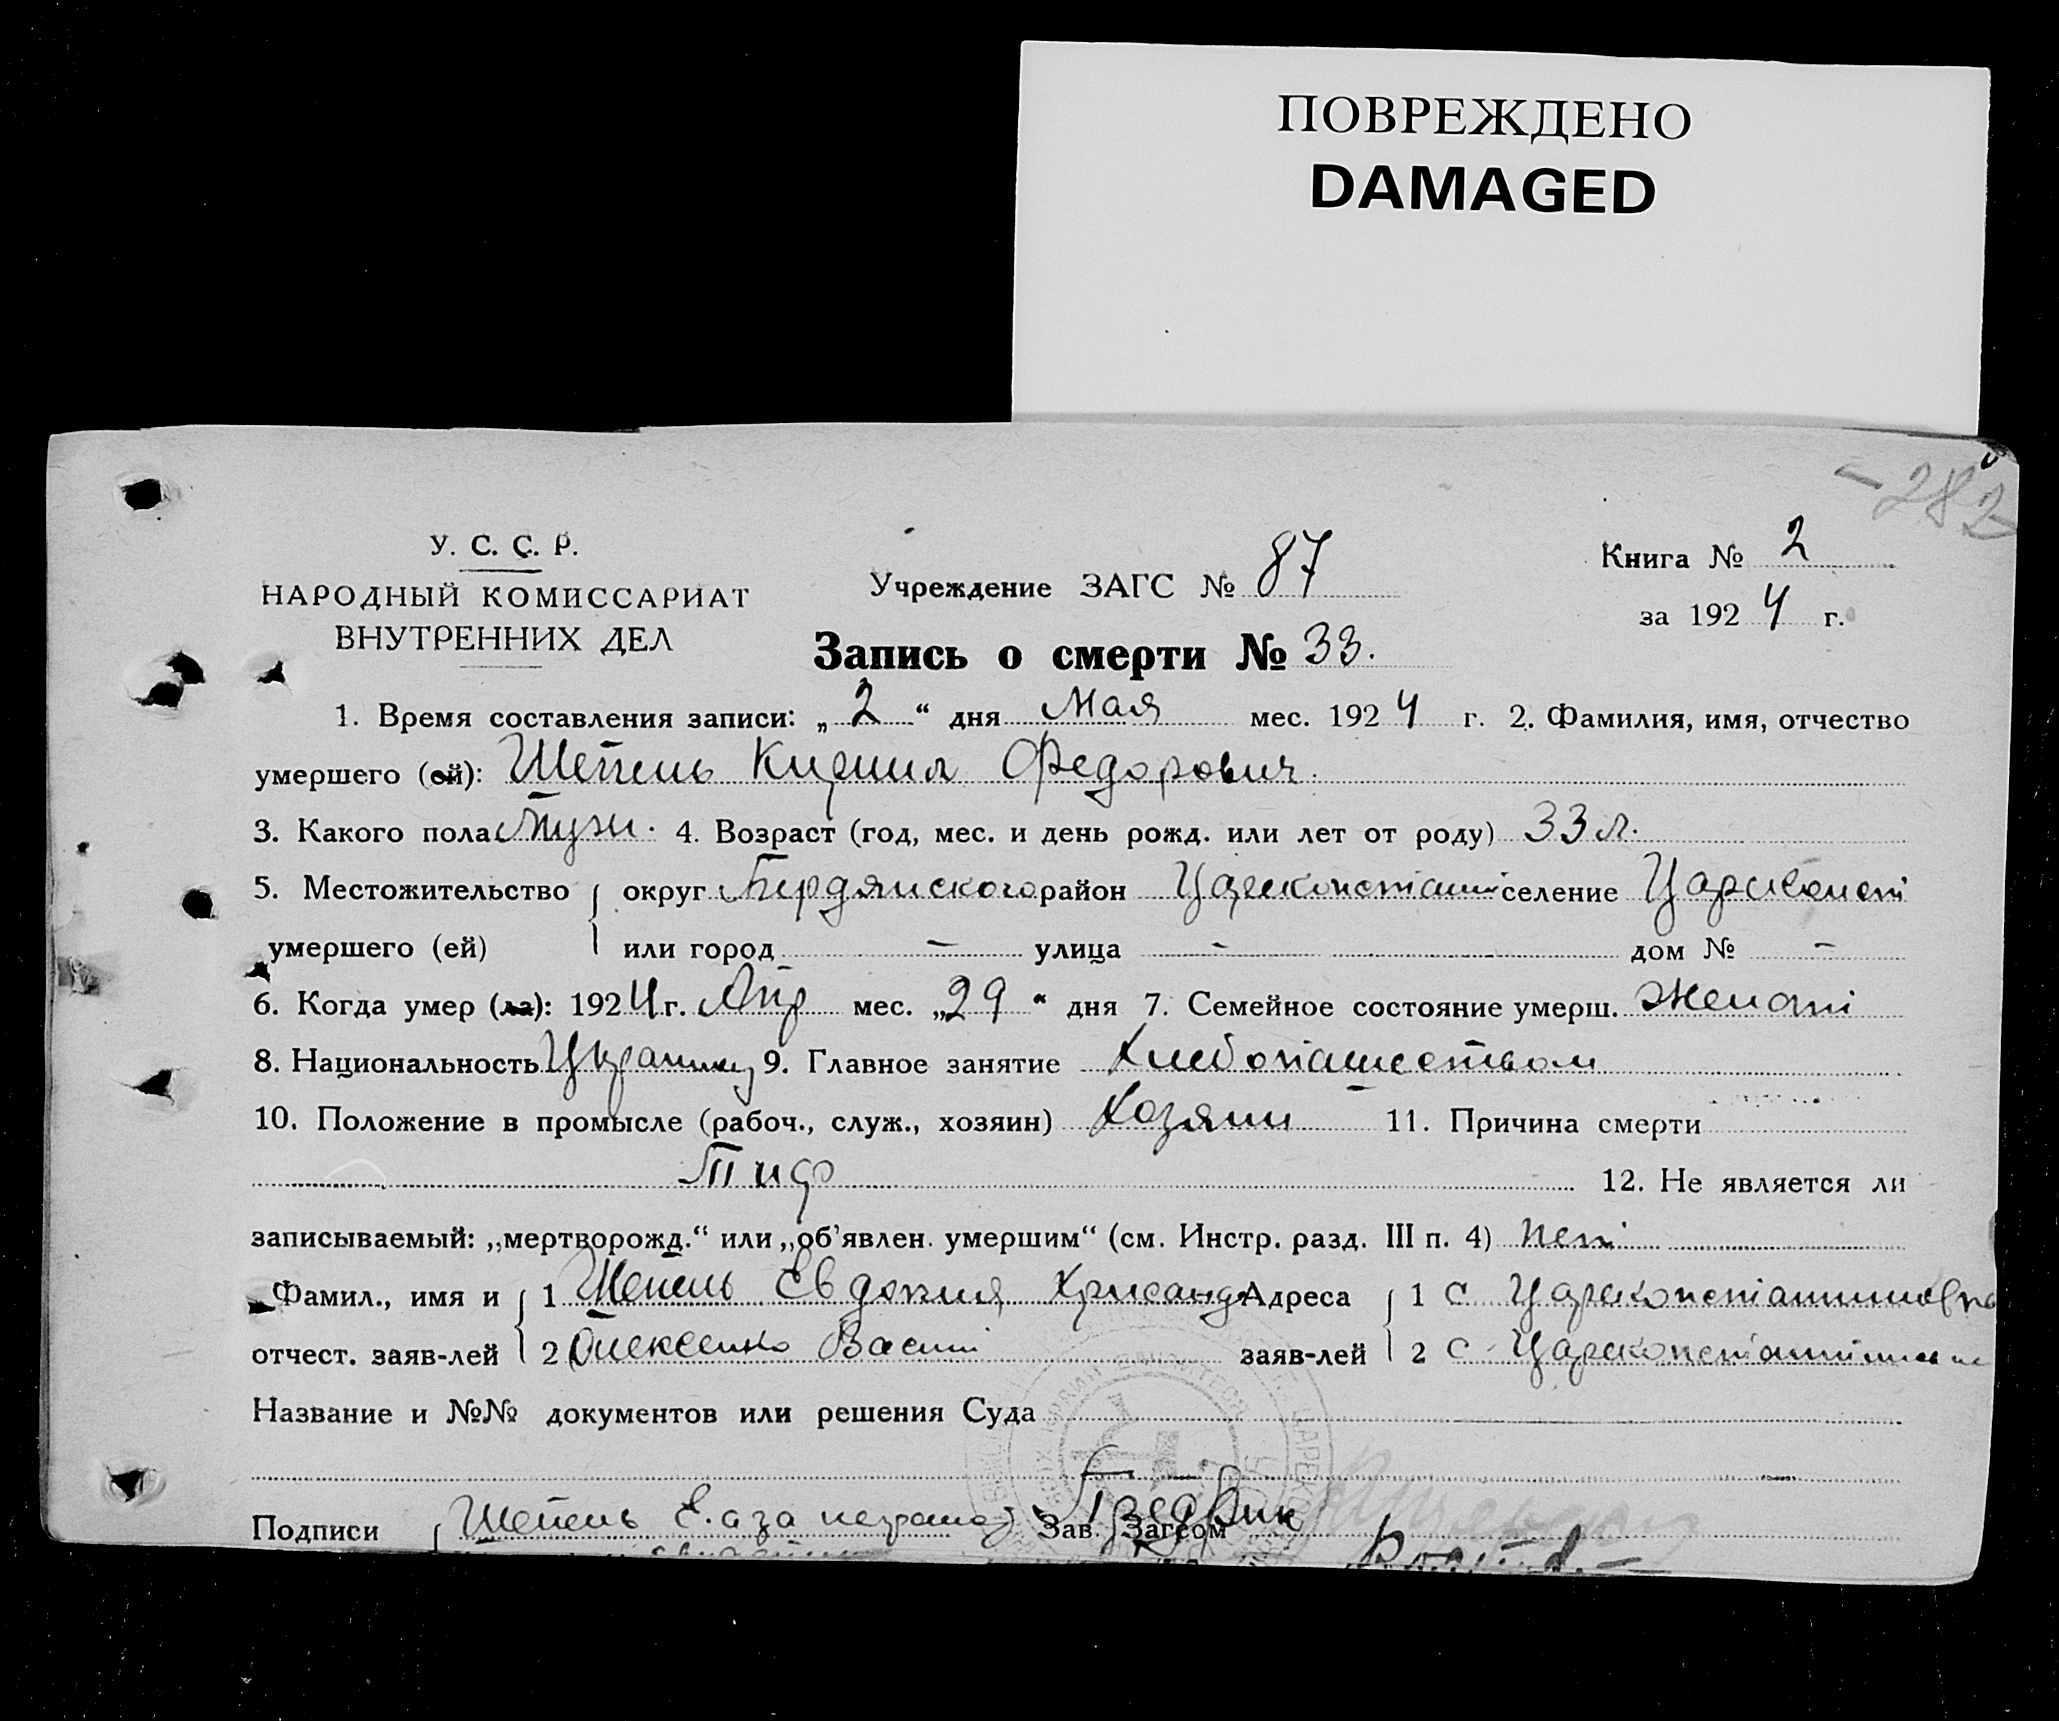 ПОВРЕЖДЕНО
DAMAGED
-282
У. С. С. Р.
НАРОДНЫЙ КОМИССАРИАТ
ВНУТРЕННИХ ДЕЛ
Учреждение ЗАГС № 87
Книга № 2
за 1924 г.
Запись о смерти № 33.
1. Время составления записи: „2“ дня Мая мес. 1924 г. 2. Фамилия, имя, отчество
умершего (ей): Шепель Кирилл Федорович.
3. Какого пола Муж. 4. Возраст (год, мес. и день рожд. или лет от роду) 33 л.
5. Местожительство округ Бердянского район Цареконстант селение Цариконст
умершего (ей) или город – улица – дом № –
6. Когда умер (ла): 1924 г. Апр мес. „29“ дня 7. Семейное состояние умерш. Женат
8. Национальность 9. Главное занятие Хлебопашеством
10. Положение в промысле (рабоч., служ., хозяин) Хозяин 11. Причина смерти
Тиф 12. Не является ли
записываемый: „мертворожд.“ или „об'явлен. умершим“ (см. Инстр. разд. III п. 4) нет
Фамил., имя и 1 Шепель Евдокия Хрисанф Адреса 1 с Цареконстантиновка
отчест. заяв-лей 2 Олексенко Васил заяв-лей 2 с. Цареконстантиновке
Название и №№ документов или решения Суда
Подписи Шепель Е. а за неграмо Зав. Загсом